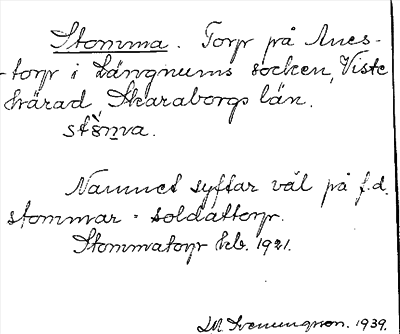 Stomma. Torp på Anes-
torp i Längnums socken, Viste
härad, Skaraborgs län.
stòm̥va.
Namnet syftar väl på f.d.
stommar = soldattorp.
Stommatorp kb. 1921.
1939.